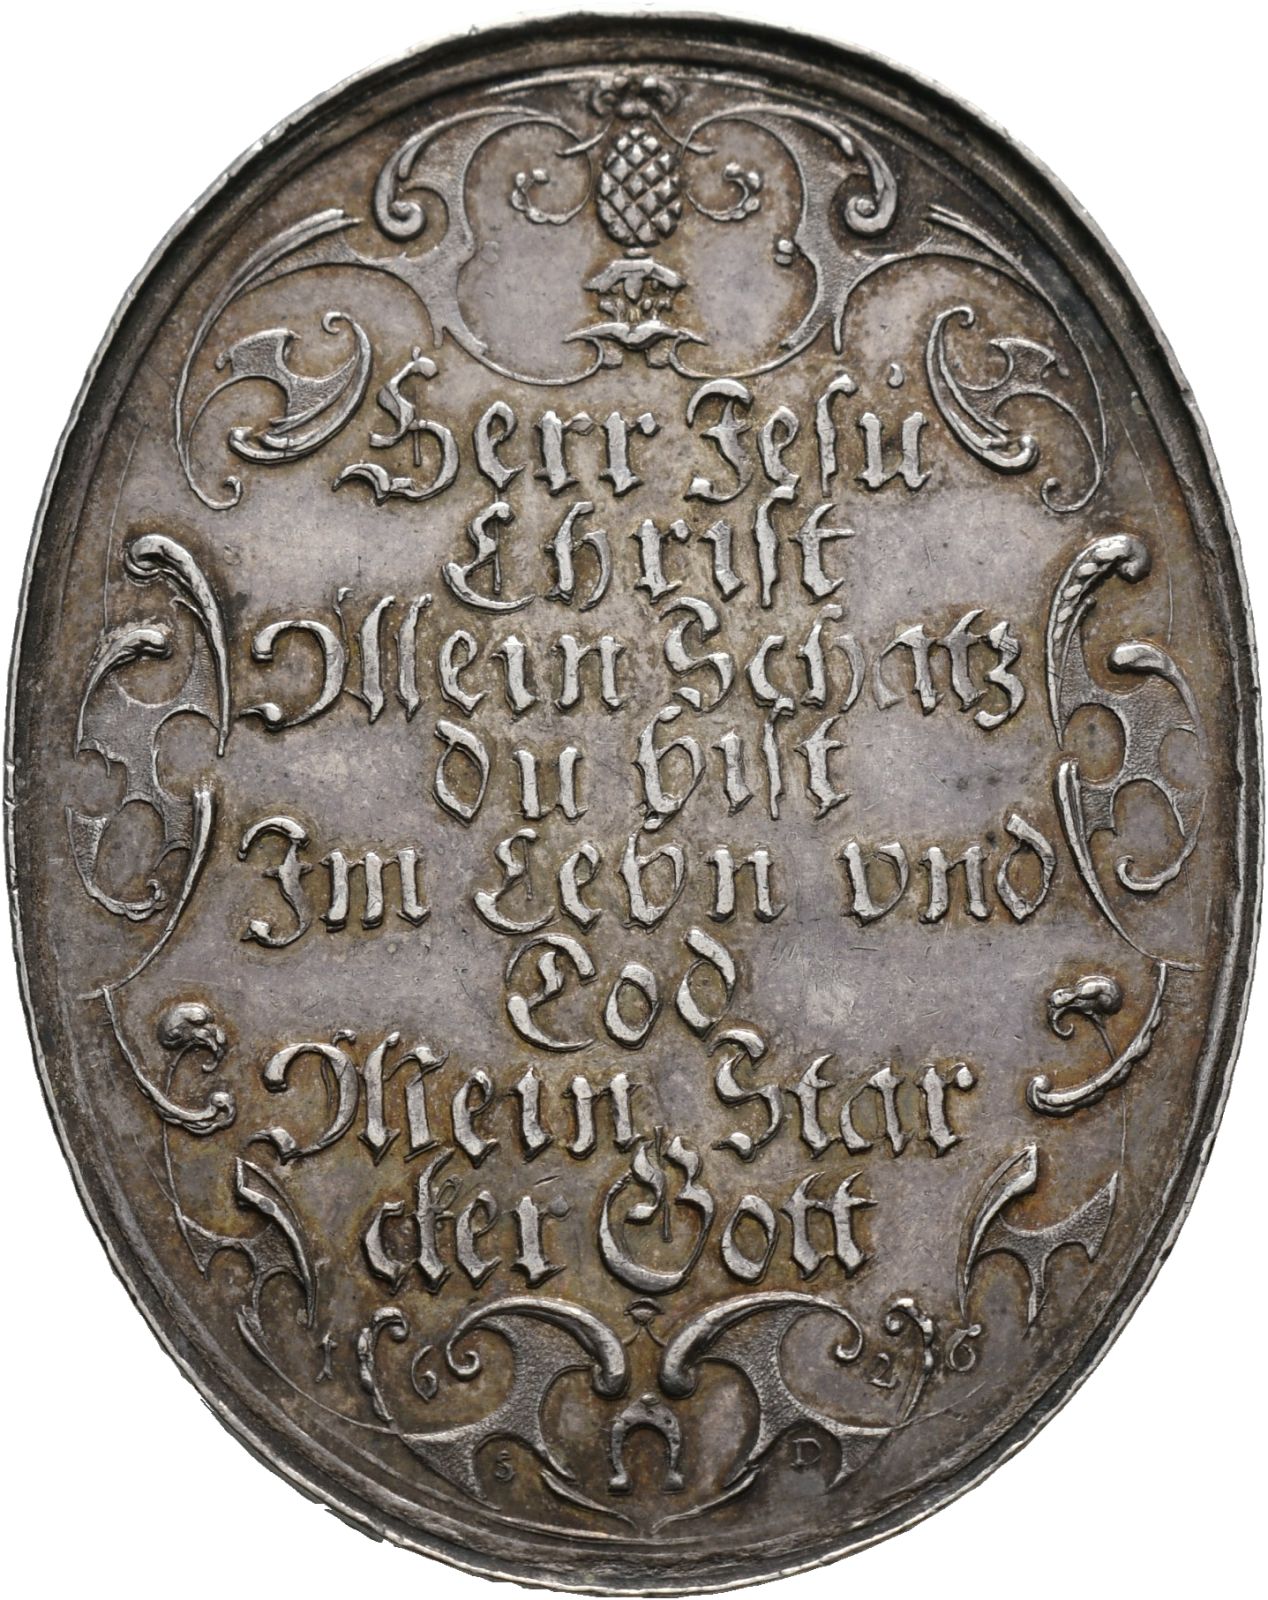 Herr Jesu
Christ
Mein Schatz
du bist
Im Lebn vnd
Tod
Mein Star
cker Gott
1626
S D